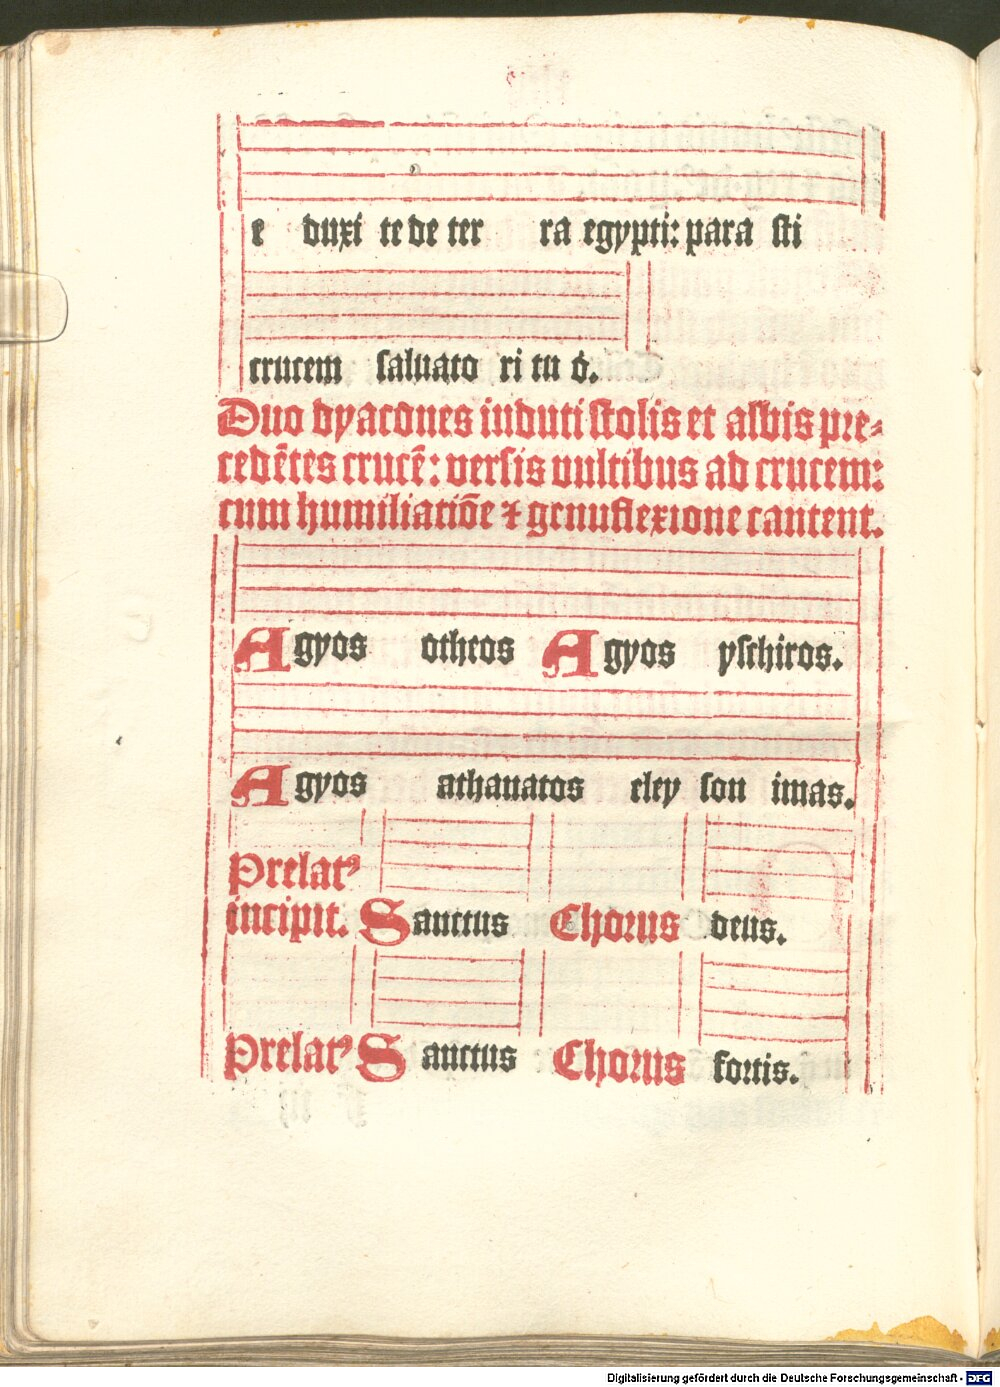 e duxi te de ter ra egypti: para sti
crucem saluato ri tu o.
Duo dyacones induti stolis et albis pre⸗
cedētes crucē: versis vultibus ad crucem:
cum humiliatiōe ⁊ genuflexione cantent.
Agyos otheos Agyos yschiros.
Agyos athanatos eley son imas.
Prelatꝰ
incipit. Sanctus Chorus deus.
Prelatꝰ Sanctus Chorus fortis.
Digitalisierung gefördert durch die Deutsche Forschungsgemeinschaft - DFG